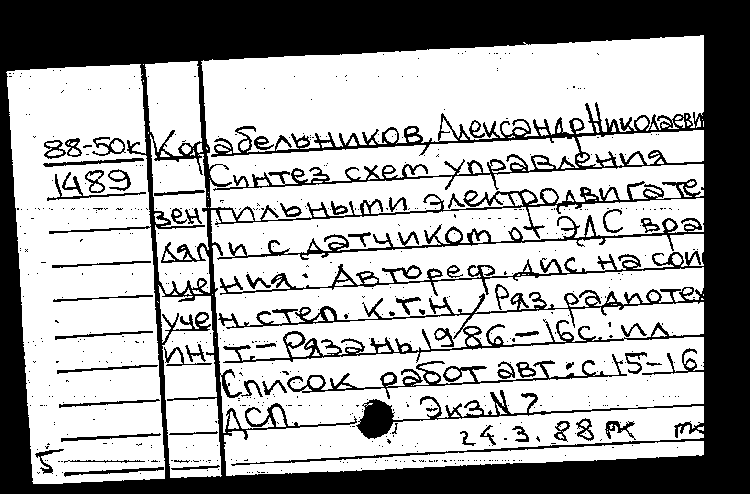 88-50к Корабельников, Александр Николаеви
1489 Синтез схем управления
вентильными электродвигате-
лями с датчиком от ЭДС вра-
щения: Автореф. дис. на сои
учен. степ. к.т.н. / Ряз. радиотех
ин-т. - Рязань, 1986. - 16 с.: ил
Список работ авт.: с. 15-16
ДСП. Экз. N 2
24.3.88
5